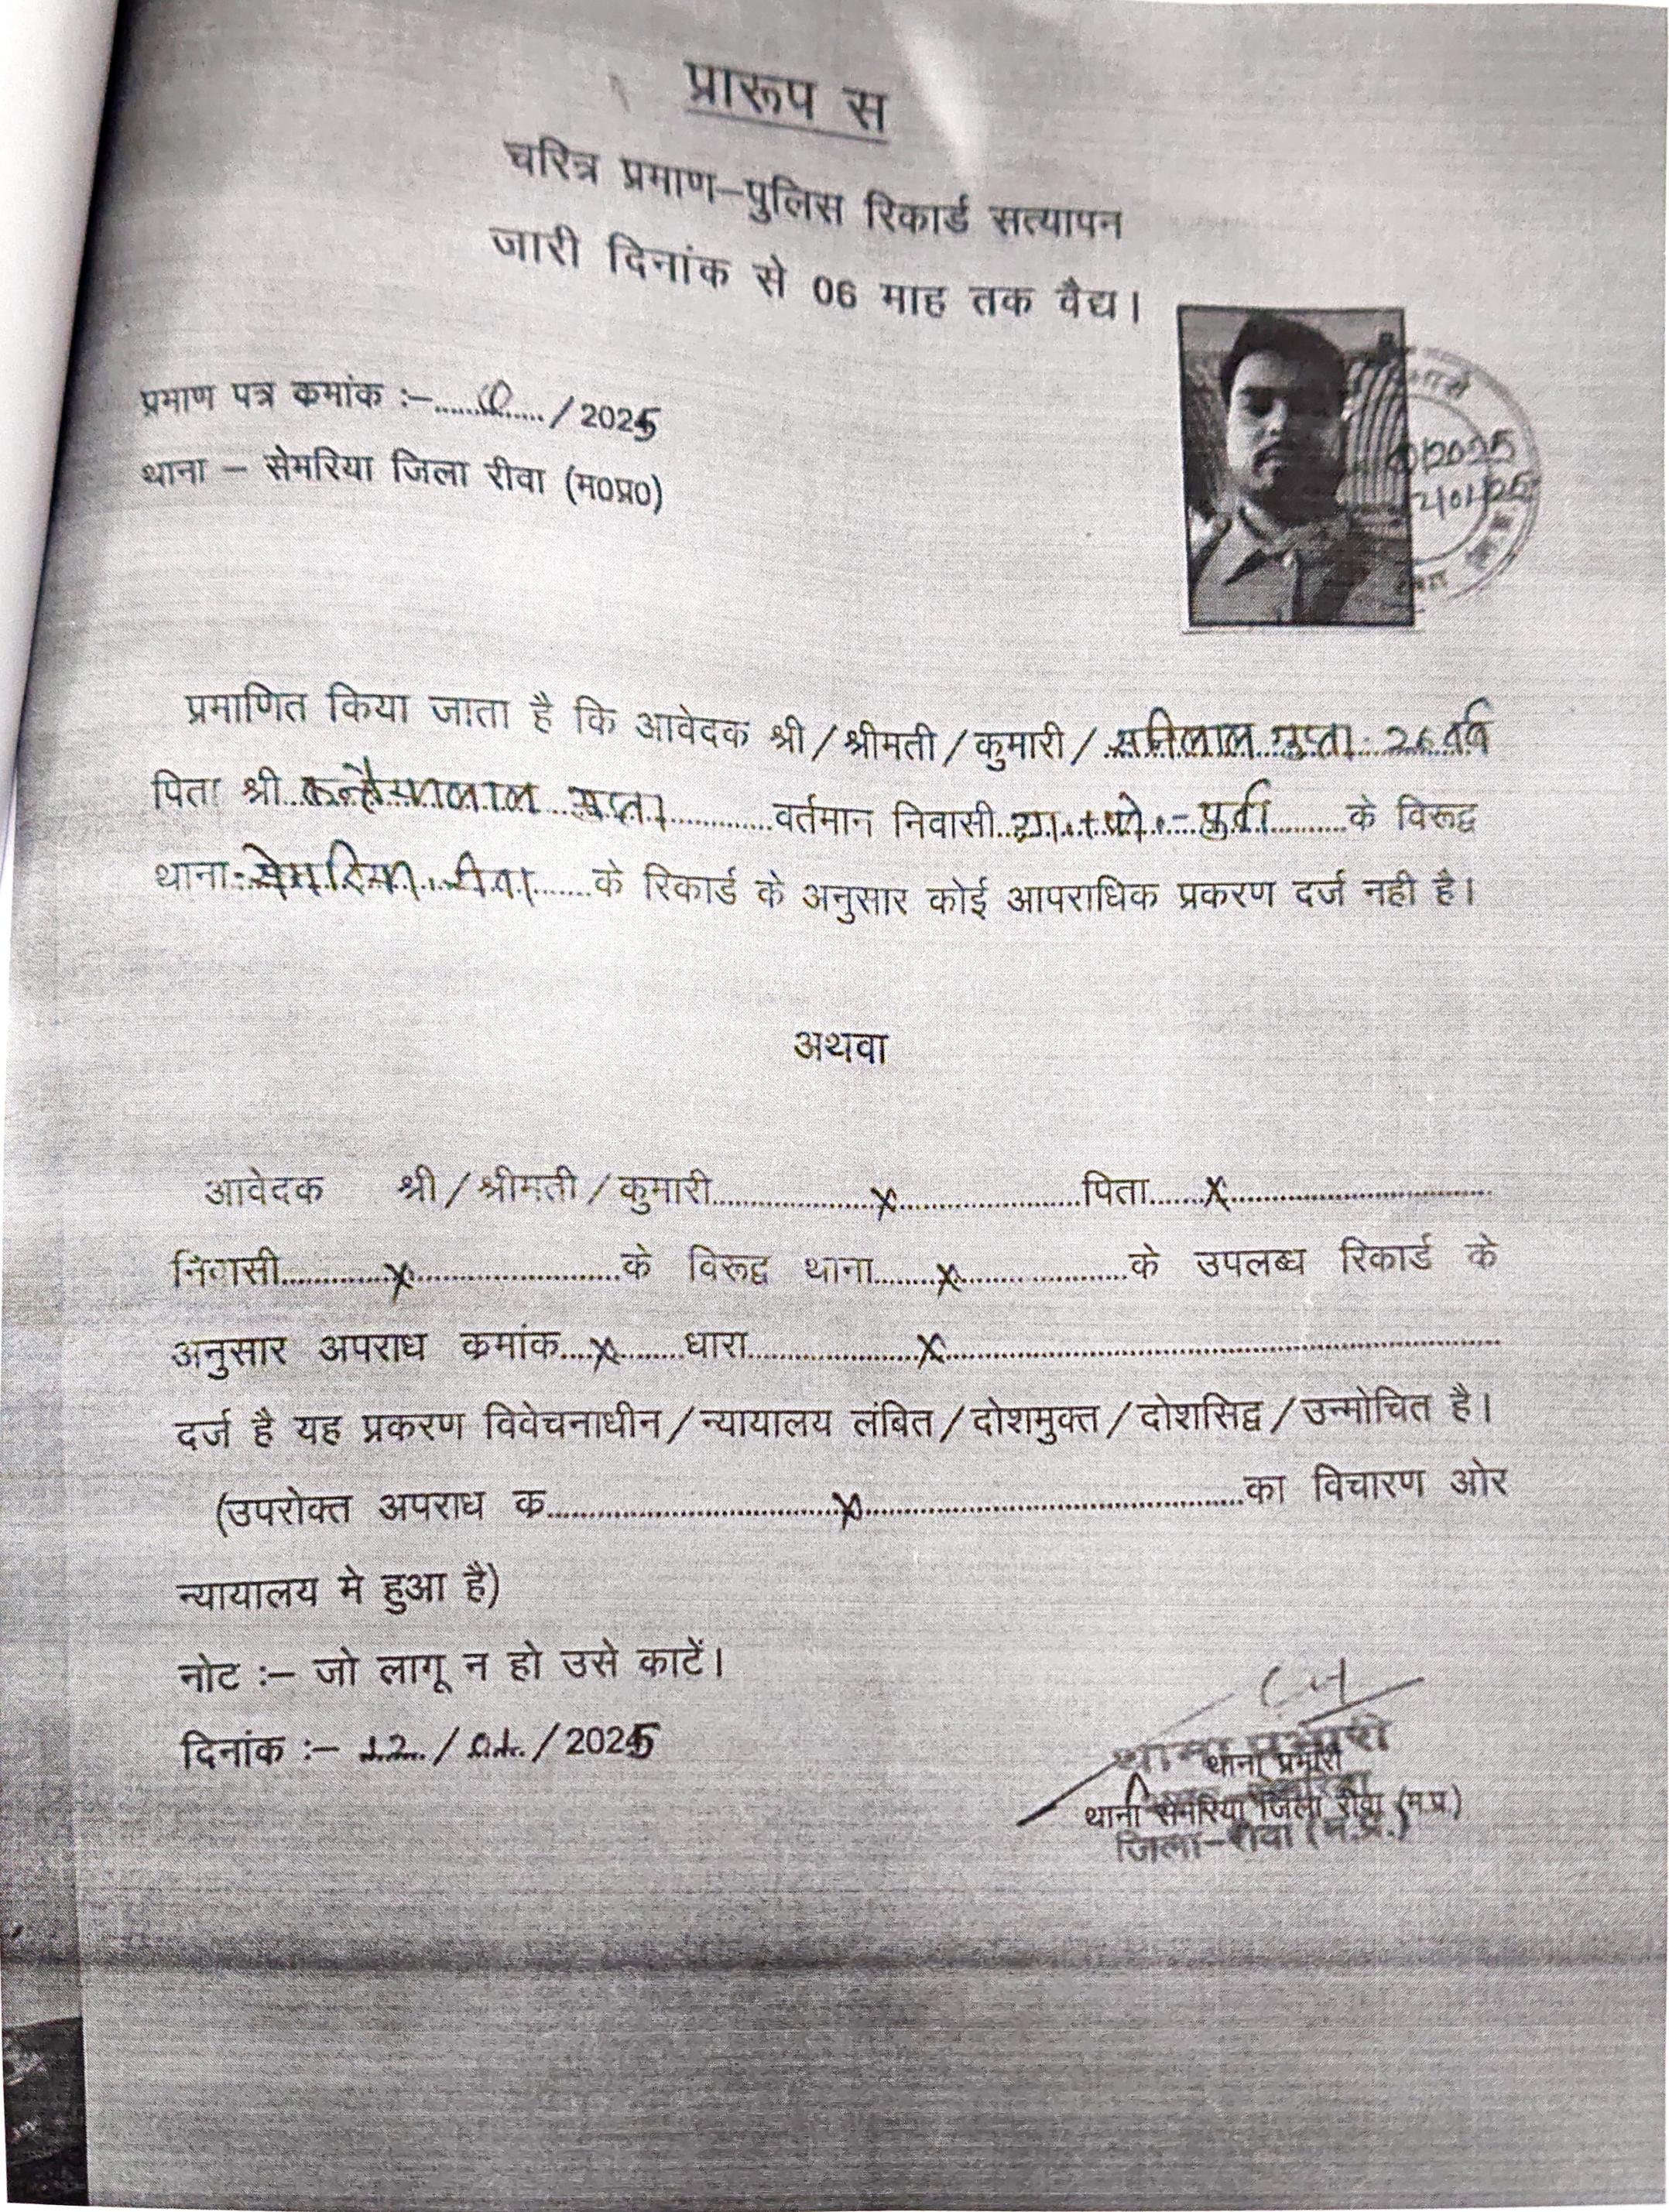 प्रारूप स
चरित्र प्रमाण–पुलिस रिकार्ड सत्यापन
जारी दिनांक से 06 माह तक वैद्य।
प्रमाण पत्र कमांक :–............/2025
/2025
12/01/25
थाना – सेमरिया जिला रीवा (म0प्र0)
प्रमाणित किया जाता है कि आवेदक श्री/श्रीमती/कुमारी/ सनिलाल गुप्ता 26 वर्ष
पिता श्री कन्हैयालाल गुप्ता............वर्तमान निवासी ग्रा.+पो.–पुर्वा.........के विरूद्व
थाना-सेमरिया, रीवा.......के रिकार्ड के अनुसार कोई आपराधिक प्रकरण दर्ज नही है।
अथवा
आवेदक श्री/श्रीमती/कुमारी............x............पिता......x............
निवासी............x............के विरूद्व थाना........x............के उपलब्ध रिकार्ड के
अनुसार अपराध कमांक....x........धारा............x............
दर्ज है यह प्रकरण विवेचनाधीन/न्यायालय लंबित/दोशमुक्त/दोशसिद्व/उन्मोचित है।
(उपरोक्त अपराध क............x............का विचारण ओर
न्यायालय मे हुआ है)
नोट :– जो लागू न हो उसे काटें।
दिनांक :– 12/01/2025
थाना प्रभारी
थाना प्रभारी
थाना सेमरिया जिला रीवा (म.प्र.)
जिला–रीवा (म.प्र.)